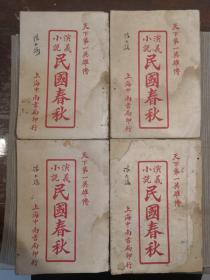 天下第一英雄傳
演義小說 民國春秋
上海中南書局印行
天下第一英雄傳
演義小說 民國春秋
上海中南書局印行
天下第一英雄傳
演義小說 民國春秋
上海中南書局印行
天下第一英雄傳
演義小說 民國春秋
上海中南書局印行